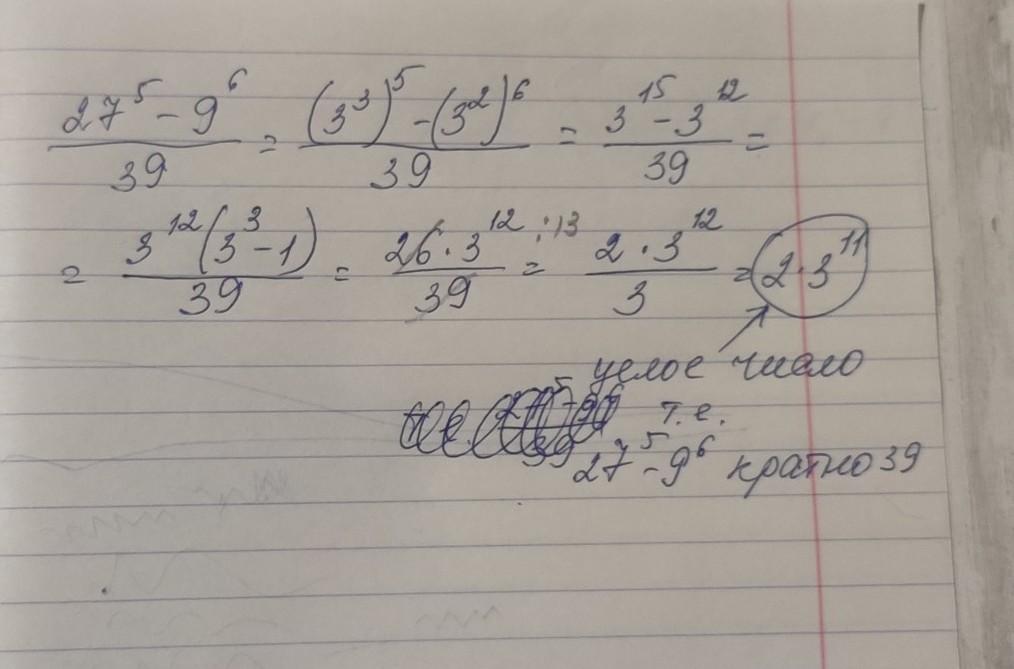 (27⁵ - 9⁶)/39 = ((3³)⁵ - (3²)⁶)/39 = (3¹⁵ - 3¹²)/39 =
= (3¹²(3³ - 1))/39 = (26 · 3¹²)/39 :13 = (2 · 3¹²)/3 = 2 · 3¹¹
целое число
т.е.
27⁵ - 9⁶ кратно 39